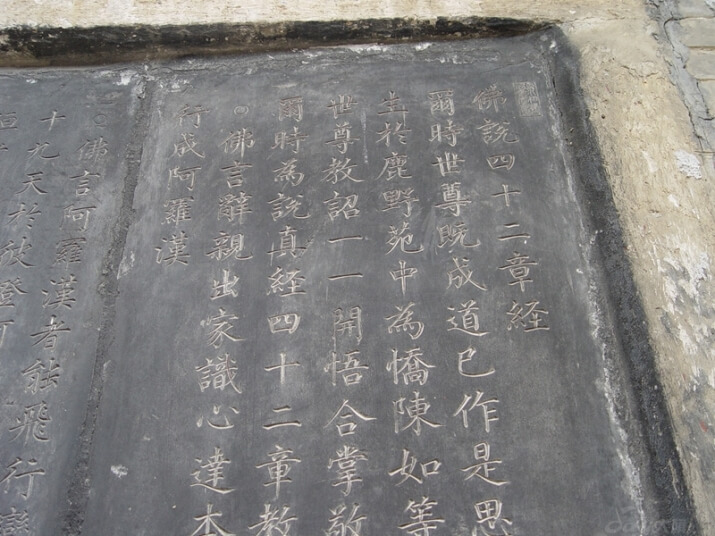 佛説四十二章経
爾時世尊既成道已作是思
圭於鹿野苑中為憍陳如等
世尊教詔一一開悟合掌敬
爾時為説真経四十二章教
○佛言辭親出家識心達本
行成阿羅漢
○佛言阿羅漢者能飛行變
十九天於彼證阿